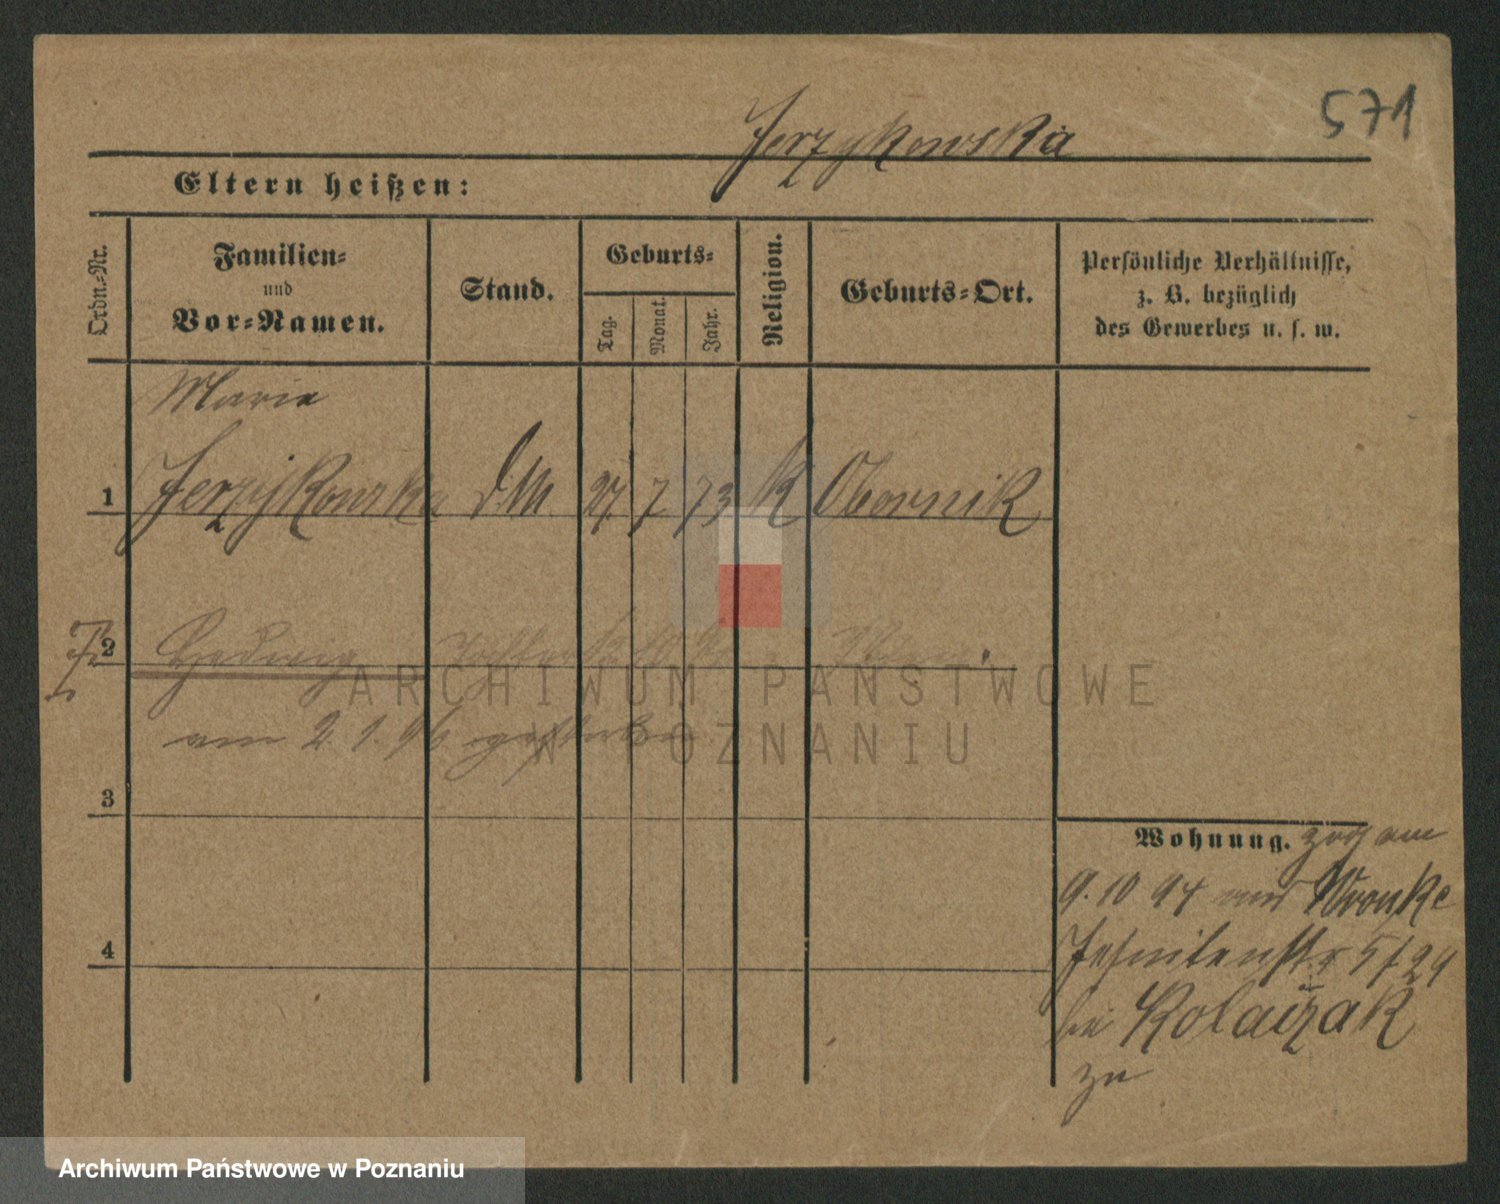 571
Jerzykowska
Eltern heißen:
Ordn.-Nr.
Familien-
und
Vor-Namen.
Stand.
Geburts-
Tag.
Monat.
Jahr.
Religion.
Geburts-Ort.
Persönliche Verhältnisse,
z. B. bezüglich
des Gewerbes u. s. w.
Marie
1 Jerzykowska d.M. 27. 7 73 K Obornik
2 Hedwig Tochter
am 2. 1. 96 gestorben
3
Wohnung. zog am
9. 10 94 aus Wronke
4
Jesuitenstr 5/24
bei Kolaizak
zu
ARCHIWUM PAŃSTWOWE
W POZNANIU
Archiwum Państwowe w Poznaniu